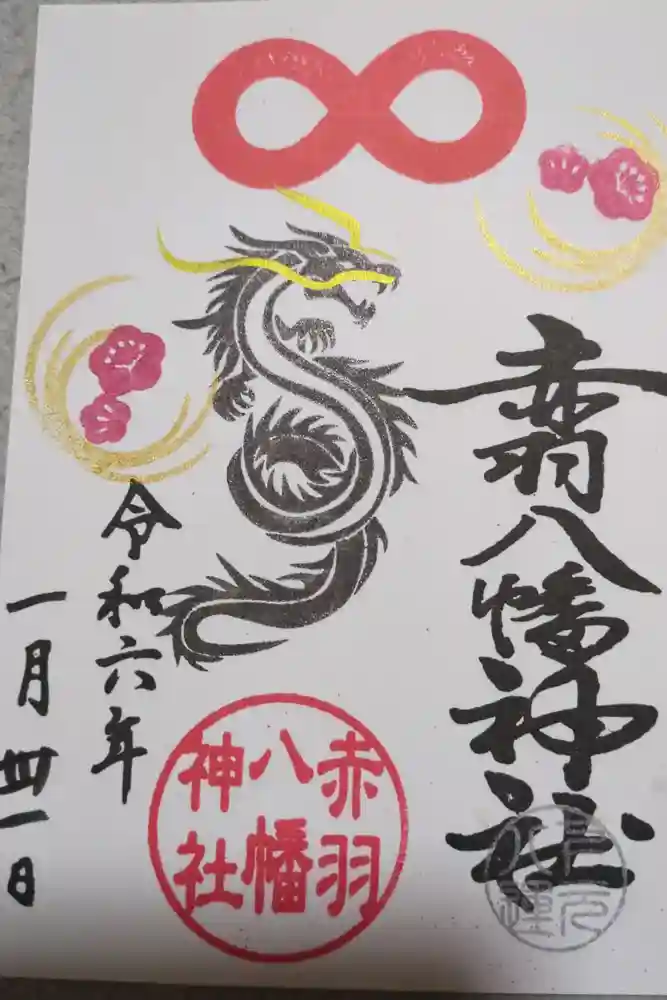 赤羽八幡神社
令和六年
一月丗一日
赤羽
八幡
神社